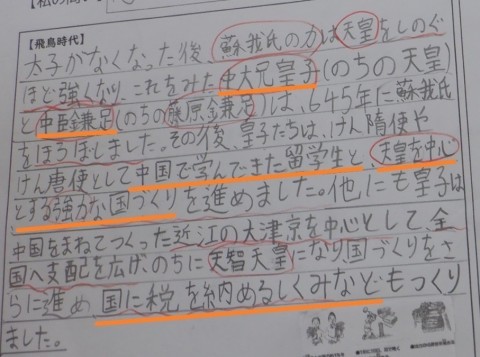 【飛鳥時代】
太子がなくなった後、蘇我氏の力は天皇をしのぐ
ほど強くなり、これをみた中大兄皇子(のちの天皇)
と中臣鎌足(のちの藤原鎌足)は、645年に蘇我氏
をほろぼしました。その後、皇子たちは、けん隋使や
けん唐使として中国で学んできた留学生と、天皇を中心
とする強力な国づくりを進めました。他にも皇子は
中国をまねてつくった近江の大津京を中心として、全
国へ支配を広げ、のちに天智天皇になり国づくりをさ
らに進め 国に税を納めるしくみなどもつくり
ました。